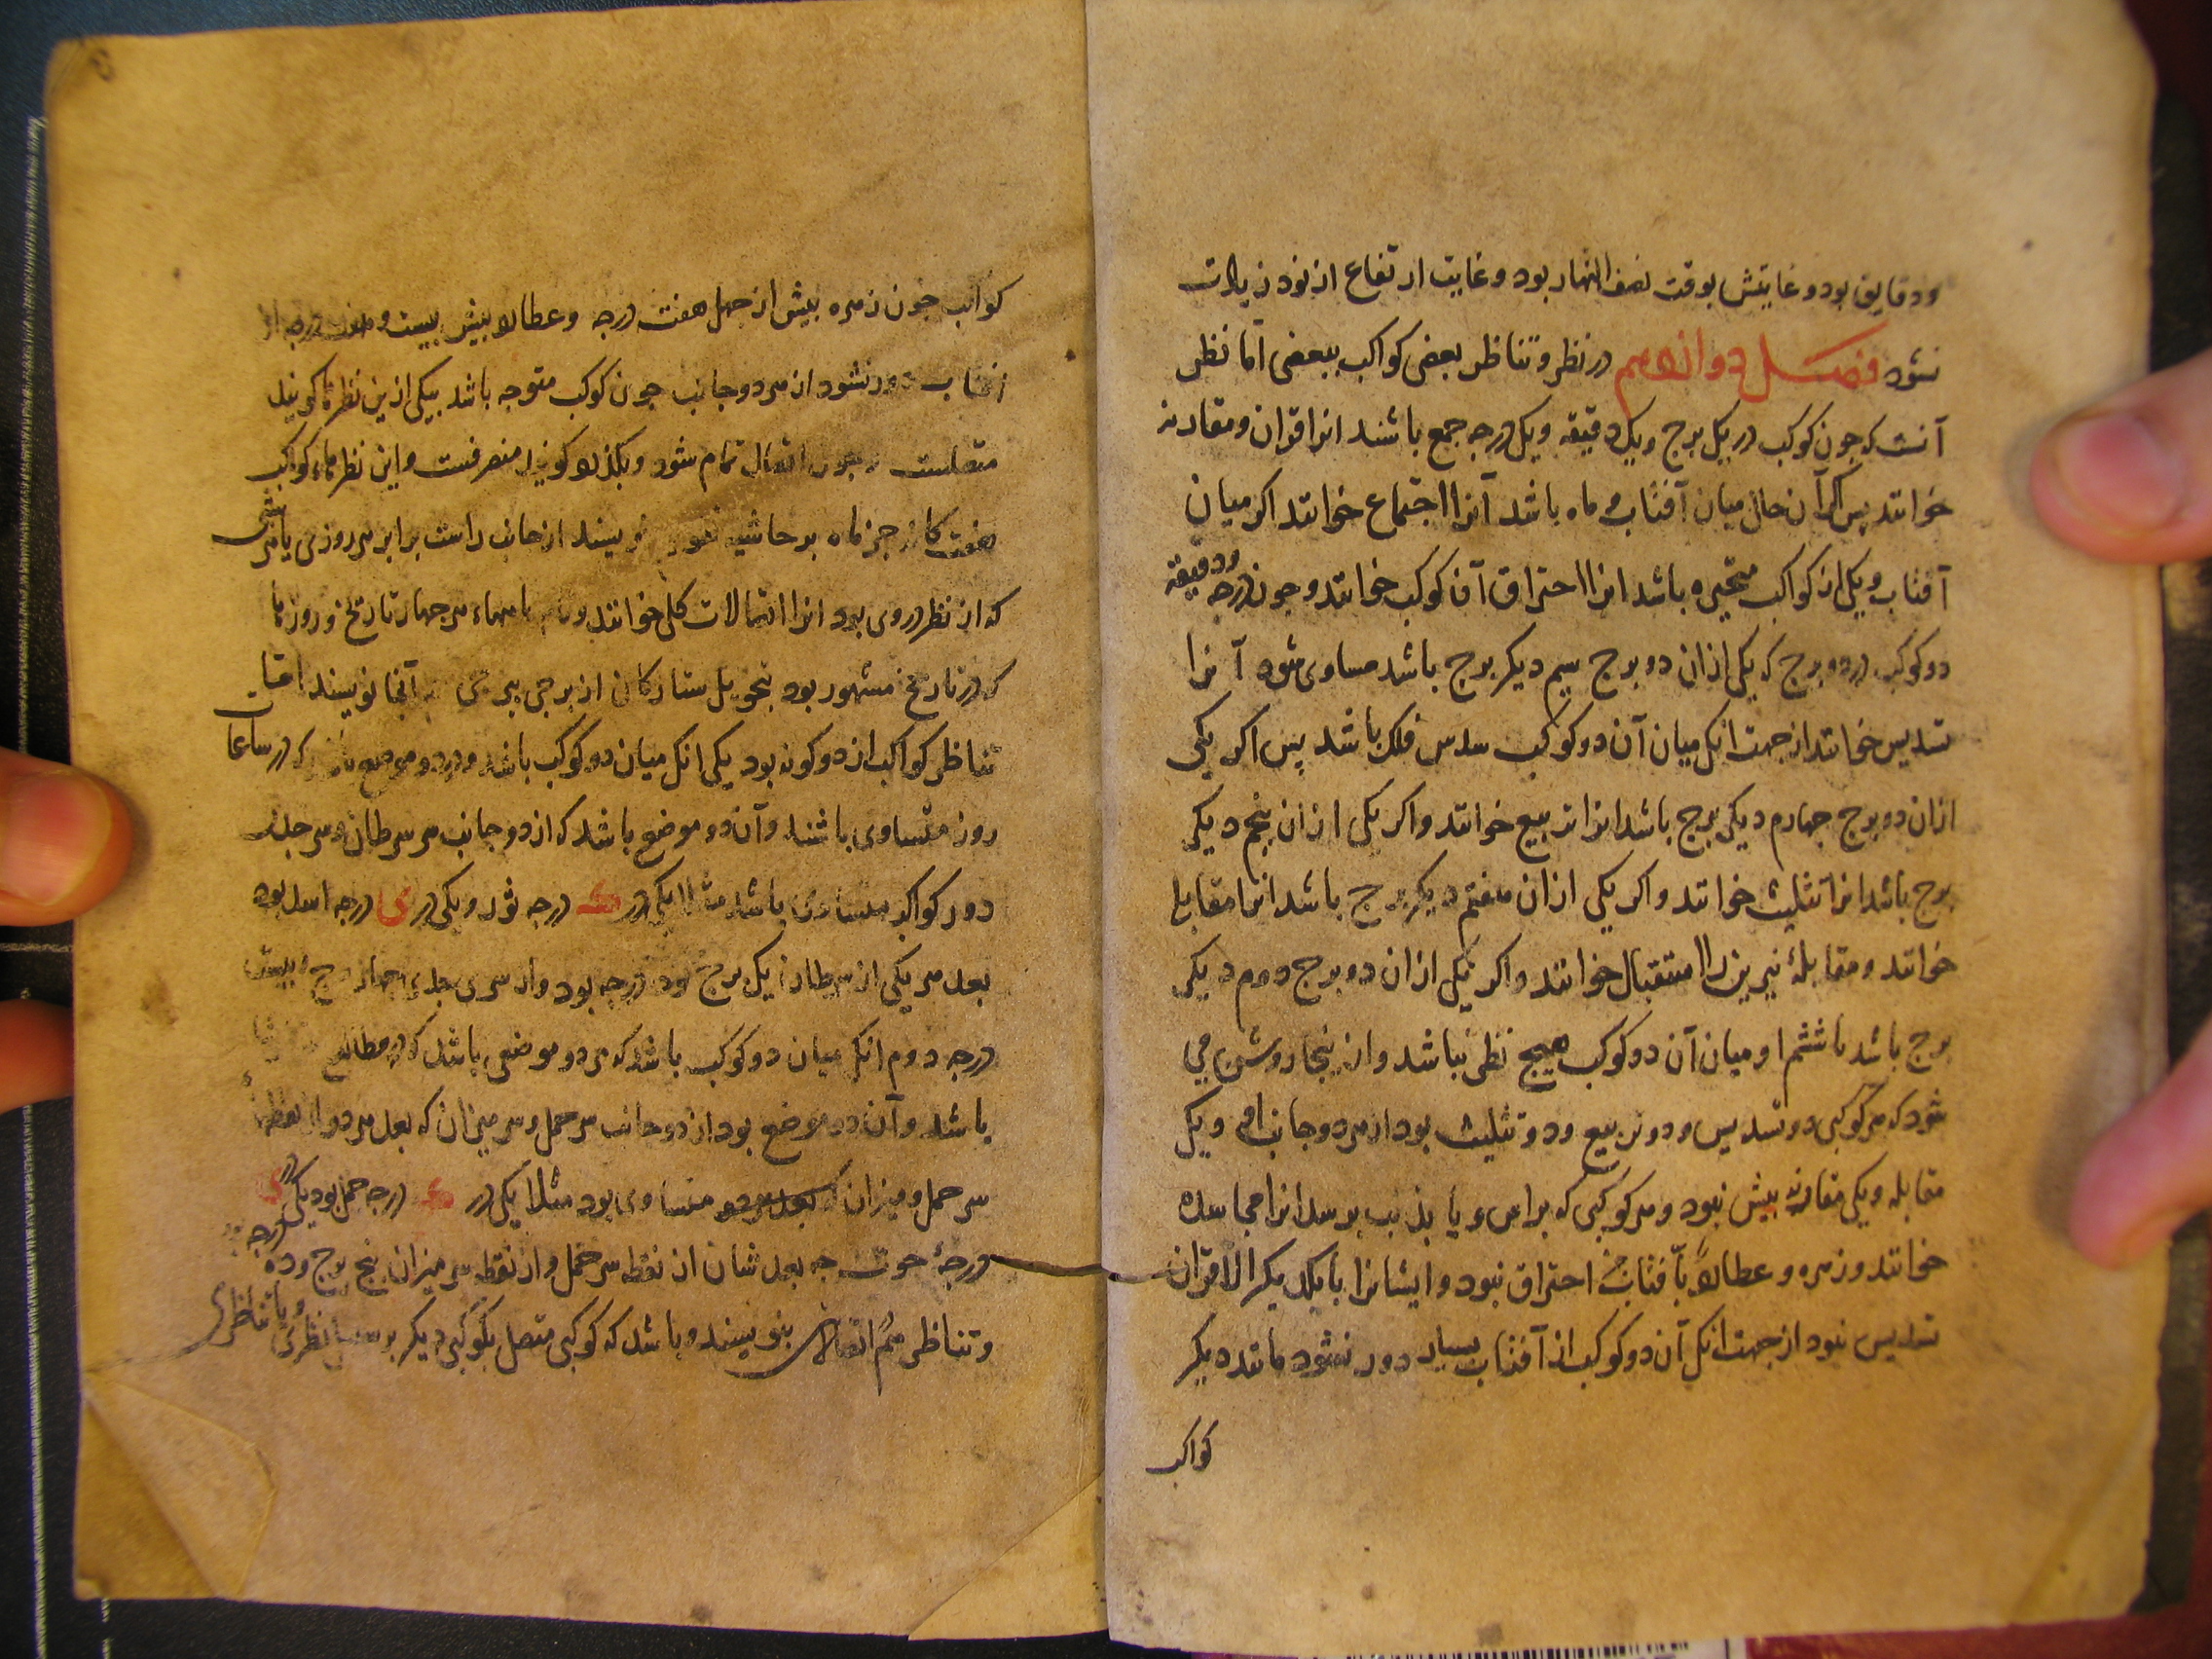 ودقایق بود و غایتش بوقت نصف النهار بود و غایت ارتفاع از نود زیادت
نشود فصل دوازدهم در نظر و تناظر بعضی کواکب ببعضی اما نظر
آنست که چون کوکب در یک برج و یک دقیقه و یک درجه جمع باشند انرا قران و مقارنه
خوانند پس اگر آن حال میان آفتاب و ماه باشد آنرا اجتماع خوانند اکر میان
آفتاب و یکی از کواکب متحیره باشد انرا احتراق آن کوکب خوانند و جون درجه و دقیقه
دو کوکب در دو برج که یکی از ان دو برج سیم دیکر برج باشد مساوی شود آنرا
تسدیس خوانند از جهت انکه میان آن دو کوکب سدس فلک باشد پس اکر یکی
ازان دو برج جهارم دیکر برج باشد انرا تربیع خوانند و اکر یکی از ان پنجم دیکر
برج باشد انرا تثلیث خوانند و اکر یکی ازان هفتم دیکر برج باشد انرا مقابله
خوانند و مقابلهٔ نیرین را استقبال خوانند و اکر یکی ازان دو برج دوم دیکر
برج باشد یا ششم او میان آن دو کوکب هیچ نظر نباشد و ازینجا روشن می
شود که هر کوکبی دو تسدیس و دو تربیع و دو تثلیث بود از هر دو جانب او و یک
مقابله و یکی مقارنه بیش نبود و هر کوکبی که براس و یا بذنب برسد انرا مجاسده
خوانند و زهره و عطارد را بآفتاب احتراق نبود و ایشانرا با یکدیکر الا قران
تسدیس نبود از جهت انکه آن دو کوکب از آفتاب بسیار دور نشود مانند دیکر
کواکب
کواکب جون زهره بیش از جهل هفت درجه و عطارد بیش بیست و هفت درجه از
آفتاب دور نشود از هر دو جانب جون کوکب متوجه باشد بیکی ازین نظرها کویند
متصلست و جون اتصال تمام شود و بکذرد کویند منصرفست و این نظرهاء کواکب
هفت کانه جز ماه بر حاشیه نویسند از جانب راست برابر هر روزی یا هر شبی
که ان نظر در وی بود انرا اتصالات کلی خوانند و ماههاء هر جهار تاریخ و روزها
که در تاریخ مشهور بود تحویل ستارکان از برجی ببرجی آنجا نویسند اما
تناظر کواکب از دو کونه بود یکی انکه میان دو کوکب باشد و در دو موضع که در ساعات
روز متساوی باشند و آن دو موضع باشد که از دو جانب سر سرطان و سر جدی
دور کواکب متساوی باشد مثلا یکی در درجه ثور و یکی در ی درجه اسد بود
بعد هر یکی از سرطان یک برج درجه بود و از سر جدی جهار برج و بیست
درجه دوم انکه میان دو کوکب باشد که در دو موضعی باشد که در مطالع
باشد و آن دو موضع بود از دو جانب سر حمل و سر میزان که بعد هر دو از نقطهٔ
سر حمل و میزان که بعد هر دو متساوی بود مثلا یکی در درجه حمل بود یکی در ی
درجهٔ حوت جه بعد شان از نقطه سر حمل و از نقطه سر میزان پنج برج و ده درجه
و تناظر هم اتصالات بنویسند و باشد که کوکبی متصل بکوکبی دیکر نظری و یا تناظری